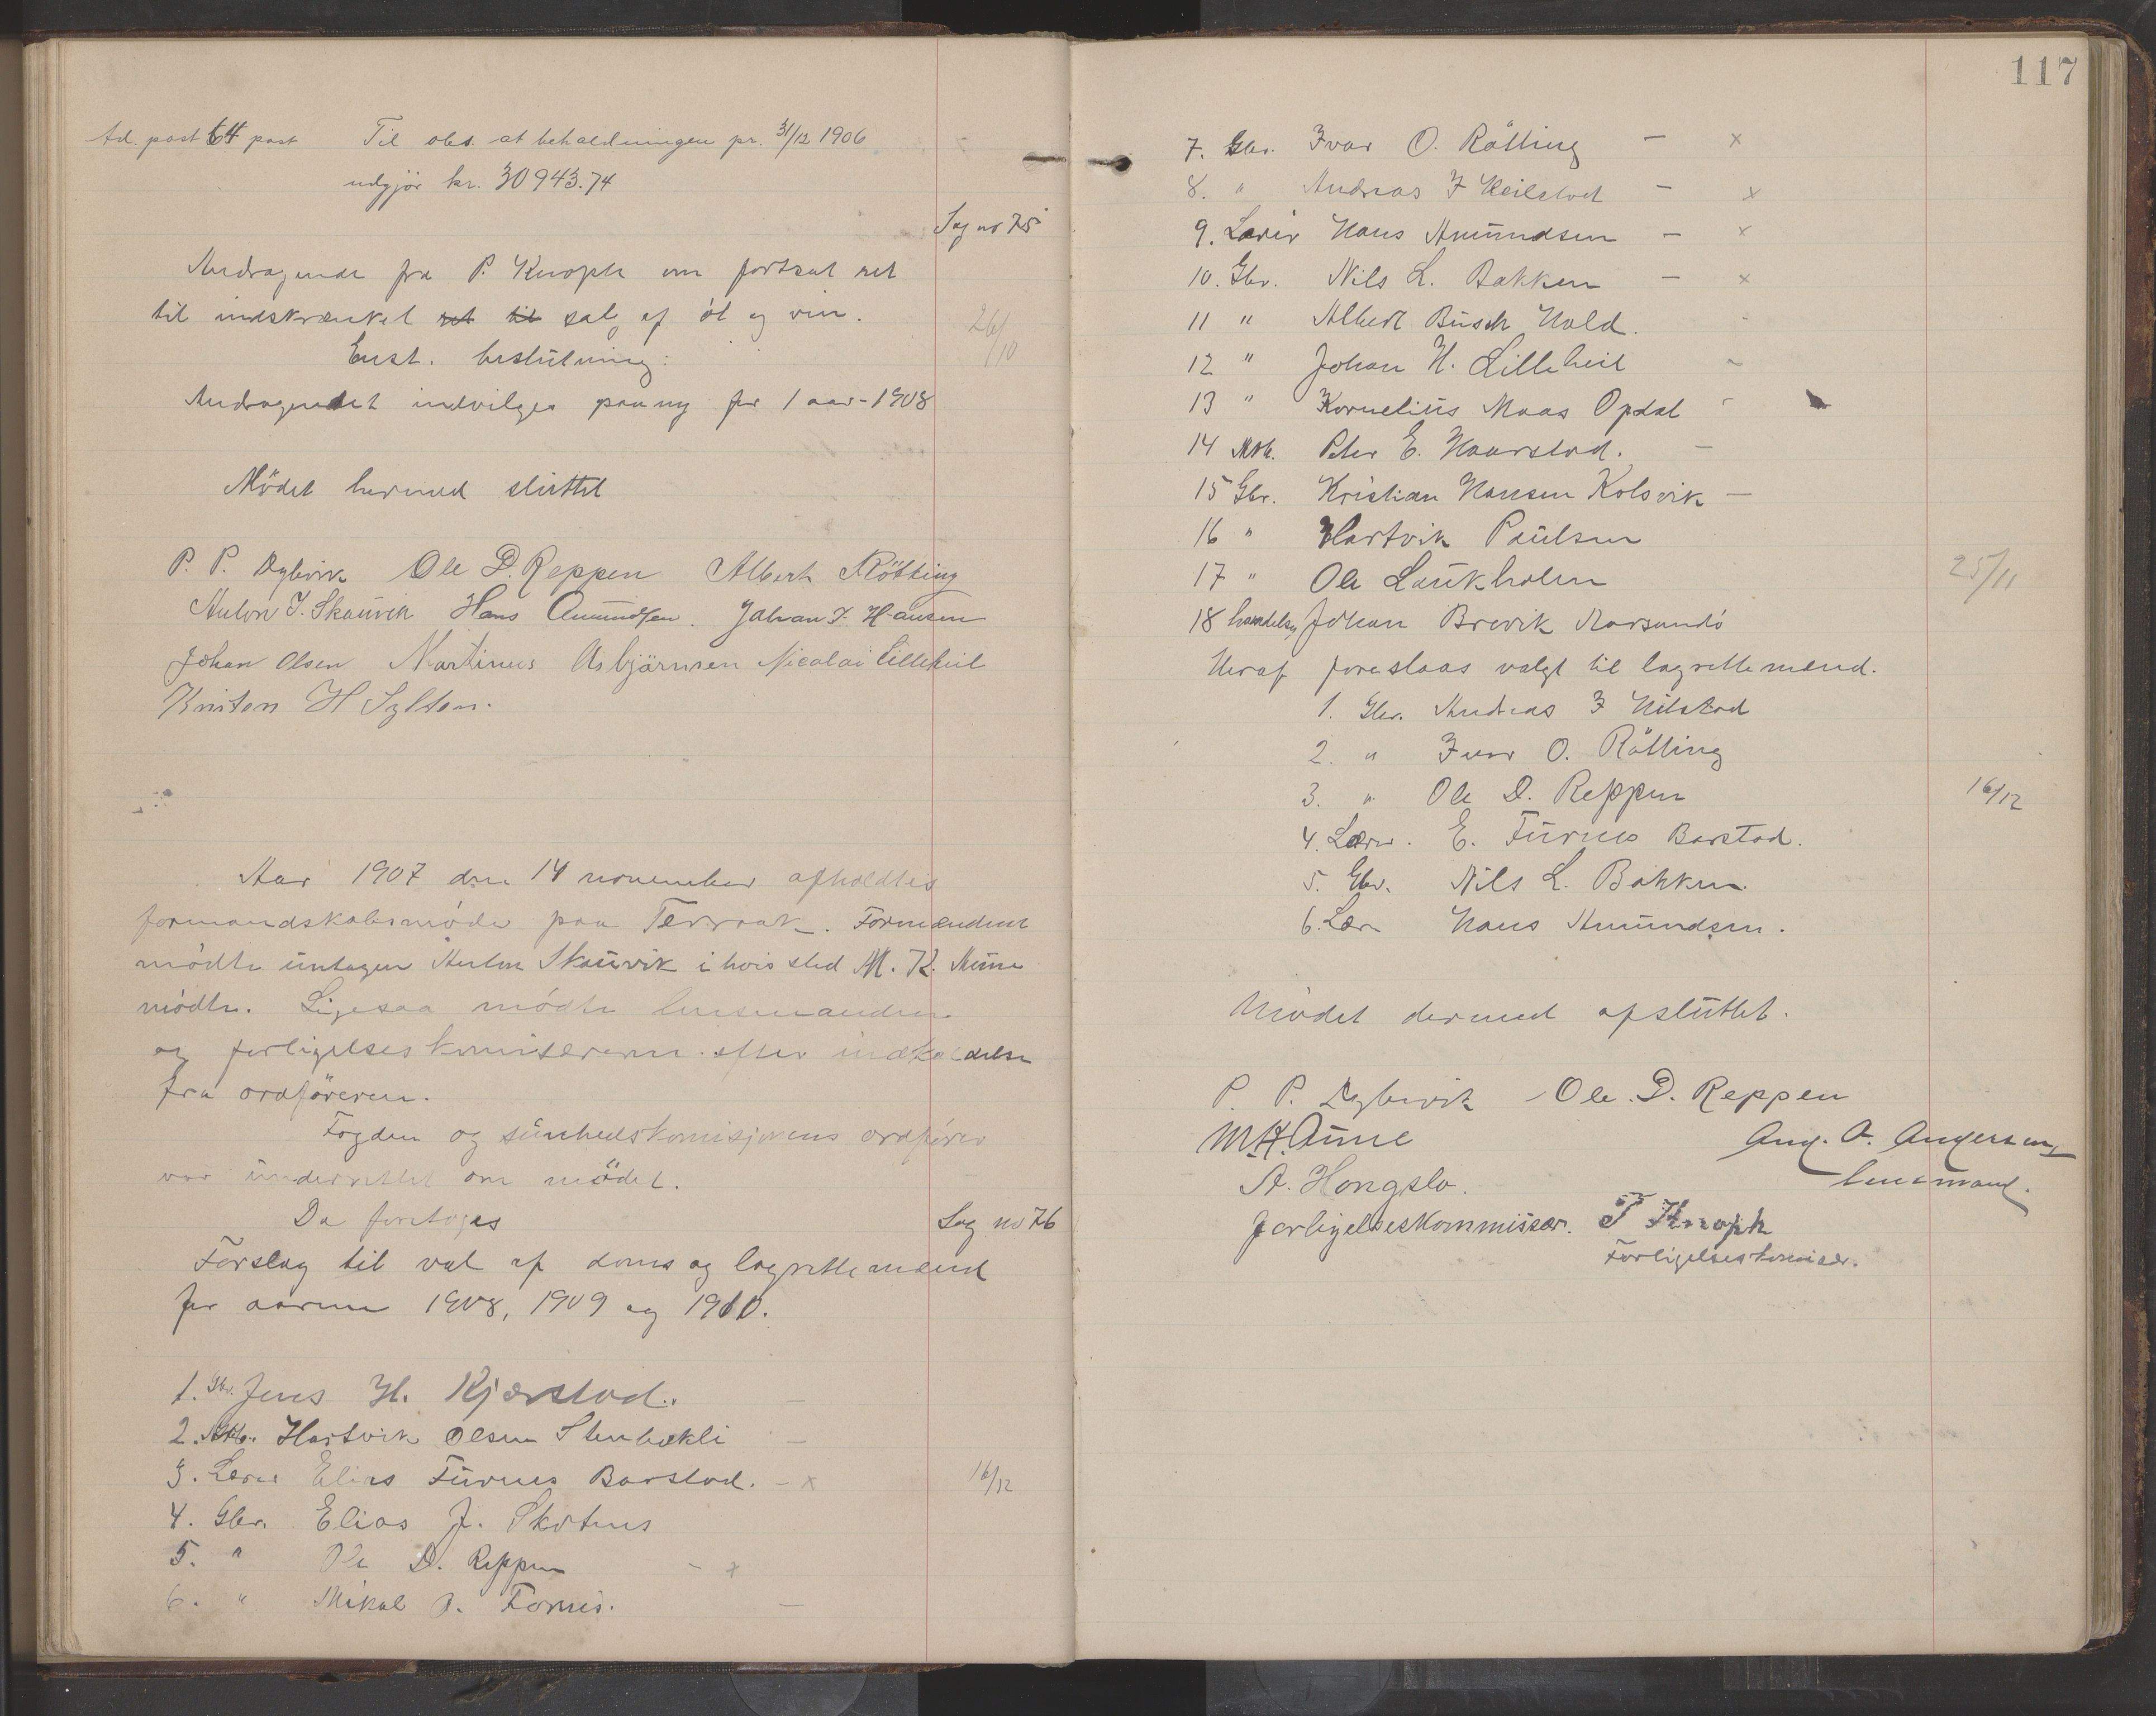 Ad. post 64 post Til obs. at beholdningen pr. 31/12 1906
udgjør kr. 30943.74
Sag no 75
Andragende fra P. Knoph om fortsat ret
til indskrænket ret til salg af öl og vin.
26/10
Enst. beslutning:
Andragendet indvilges paany for 1 aar - 1908
Mödet hermed sluttet
P. P. Dybvik Ole D. Reppen Albert Rötting
Anton J. Skauvik Hans Amundsen. Johan J. Hansen
Johan Olsen Martinus Asbjörnsen Nicolai Lilleheil
Kristen H Sylten.
Aar 1907 den 14 november afholdtes
formandskabsmöde paa Terraak. Formændene
mödte untagen Anton Skauvik i hvis sted M. K. Aune
mödte. Ligesaa mödte lensmanden
og forligelseskomisærerne efter indkaldelse
fra ordföreren.
Fogden og sunhedskomisjonens ordförer
var underrettet om mödet.
Da foretoges
Sag no 76
Forslag til val af doms og lagrettemænd
for aarene 1908, 1909 og 1910.
1. Gbr. Jens H. Kjærstad. -
2. Hartvik Olsen Stenbækli -
3. Lærer Elias Furnes Barstad. - x
16/12
4. Gbr. Elias J. Skotnes
5. " Ole D. Reppen - x
6. " Mikal Fornes. -
117
7. Gbr. Ivar O. Rötting - x
8. " Andreas F Heilstad - x
9. Lærer Hans Amundsen - x
10. Gbr. Nils L. Bakken - x
11 " Albert Busch Hald. -
12 " Johan H. Lilleheil -
13 " Kornelius Maas Opdal -
14 Peter E. Haarstad. -
15 Gbr. Kristian Hansen Kolsvik -
16 " Hartvik Paulsen
17 " Ole Laukholm
25/11
18 handelsm Johan Brevik
Heraf foreslaas valgt til lagrettemænd.
1. Gbr. Andreas F Hilstad
2. " Ivar O. Rötting
3. " Ole D. Reppen
16/12
4. Lærer. E. Furnes Barstad.
5. Gbr. Nils L. Bakken
6. Lær Hans Amundsen.
Mödet dermed afsluttet.
P. P. Dybvik Ole. D. Reppen
M. K. Aune
lensmand.
A. Hongslo.
forligelseskommissær. P Knoph
Forligelseskomisær.